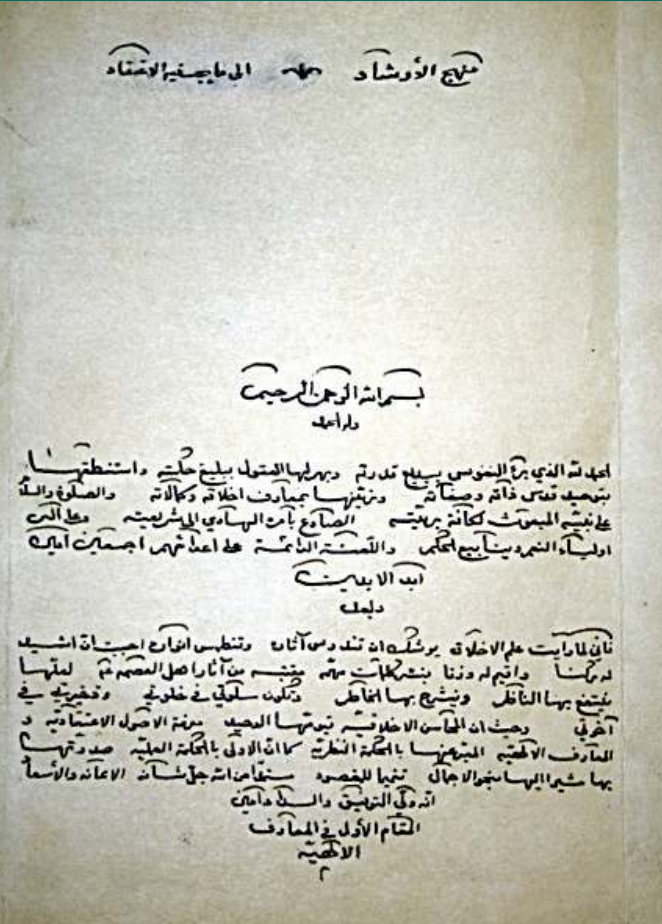 منهج الأرشاد الى ما يجب فيه الاعتقاد
بسم الله الرحمن الرحيم
وله الحمد
الحمد لله الذي برء النفوس ببديع قدرته وبهر لها العقول ببليغ حكمته واستنطقها
بتوحيد قدس ذاته وصفاته وزينها بمعارف اخلاقه وكمالاته والصلوة والسلا
على نبيه المبعوث لكافة بريته الصادع بأمره الهادي الى شريعته وعلى آله
اولياء النعم وينابيع الحكم واللعنة الدائمة على اعدائهم اجمعين آمين
ابد الابدين
وبعد
فاني لما رأيت علم الاخلاق يوشك ان تندرس آثاره وتنطمس انواره احببت ان اشيد
له ركنا واقيم له وزنا بنشر كلمات مهمة مقتبسة من آثار اهل العصمة لعلها
ينتفع بها الناظر وينشرح بها الخاطر وتكون سلوتي في خلوتي وذخيرتي في
آخرتي وحيث ان المحاسن الاخلاقية تتوقف معرفة الاصول الاعتقادية و
المعارف الالهية المعبر عنها بالحكمة النظرية كما ان الاولى بالحكمة العملية صدرتها
بها مشيرا اليها بنحو الاجمال تتميما للمقصود مستمدا من الله جل شأنه الاعانة والأسعا
انه ولي التوفيق والسداد آمين
المقام الأول في المعارف
الالهية